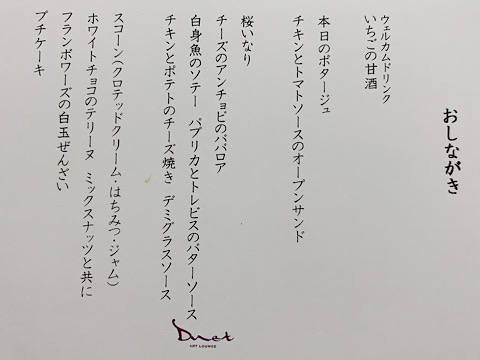 おしながき
ウェルカムドリンク
いちごの甘酒
本日のポタージュ
チキンとトマトソースのオープンサンド
桜いなり
チーズのアンチョビのババロア
白身魚のソテー パプリカとトレビスのバターソース
チキンとポテトのチーズ焼き デミグラスソース
スコーン(クロテッドクリーム・はちみつ・ジャム)
ホワイトチョコのテリーヌ ミックスナッツと共に
フランボワーズの白玉ぜんざい
プチケーキ
Duet
ART LOUNGE